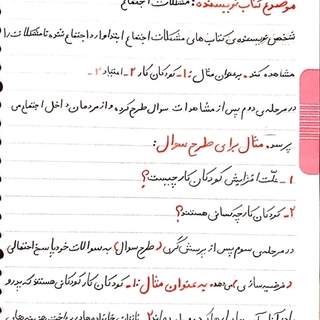 موضوع کتاب نویسنده: مشکلات اجتماعی
شخص نویسنده ی کتاب های مشکلات اجتماع ابتدا وارد اجتماع شده تا مشکلات را
مشاهده کند. به عنوان مثال: ۱- کودکان کار ۲- اعتیاد ۳-
در مرحله ی دوم پس از مشاهدات سوال طرح کرده و از مردمان داخل اجتماع می
پرسد. مثال برای طرح سوال:
۱- علت افزایش کودکان کار چیست؟
۲- کودکان کار چه کسانی هستند؟
در مرحله ی سوم پس از پرسش گری (طرح سوال) به سوالات خود پاسخ احتمالی
(فرضیه سازی) می دهد. به عنوان مثال: ۱- کودکان کار کودکانی هستند که پدر و